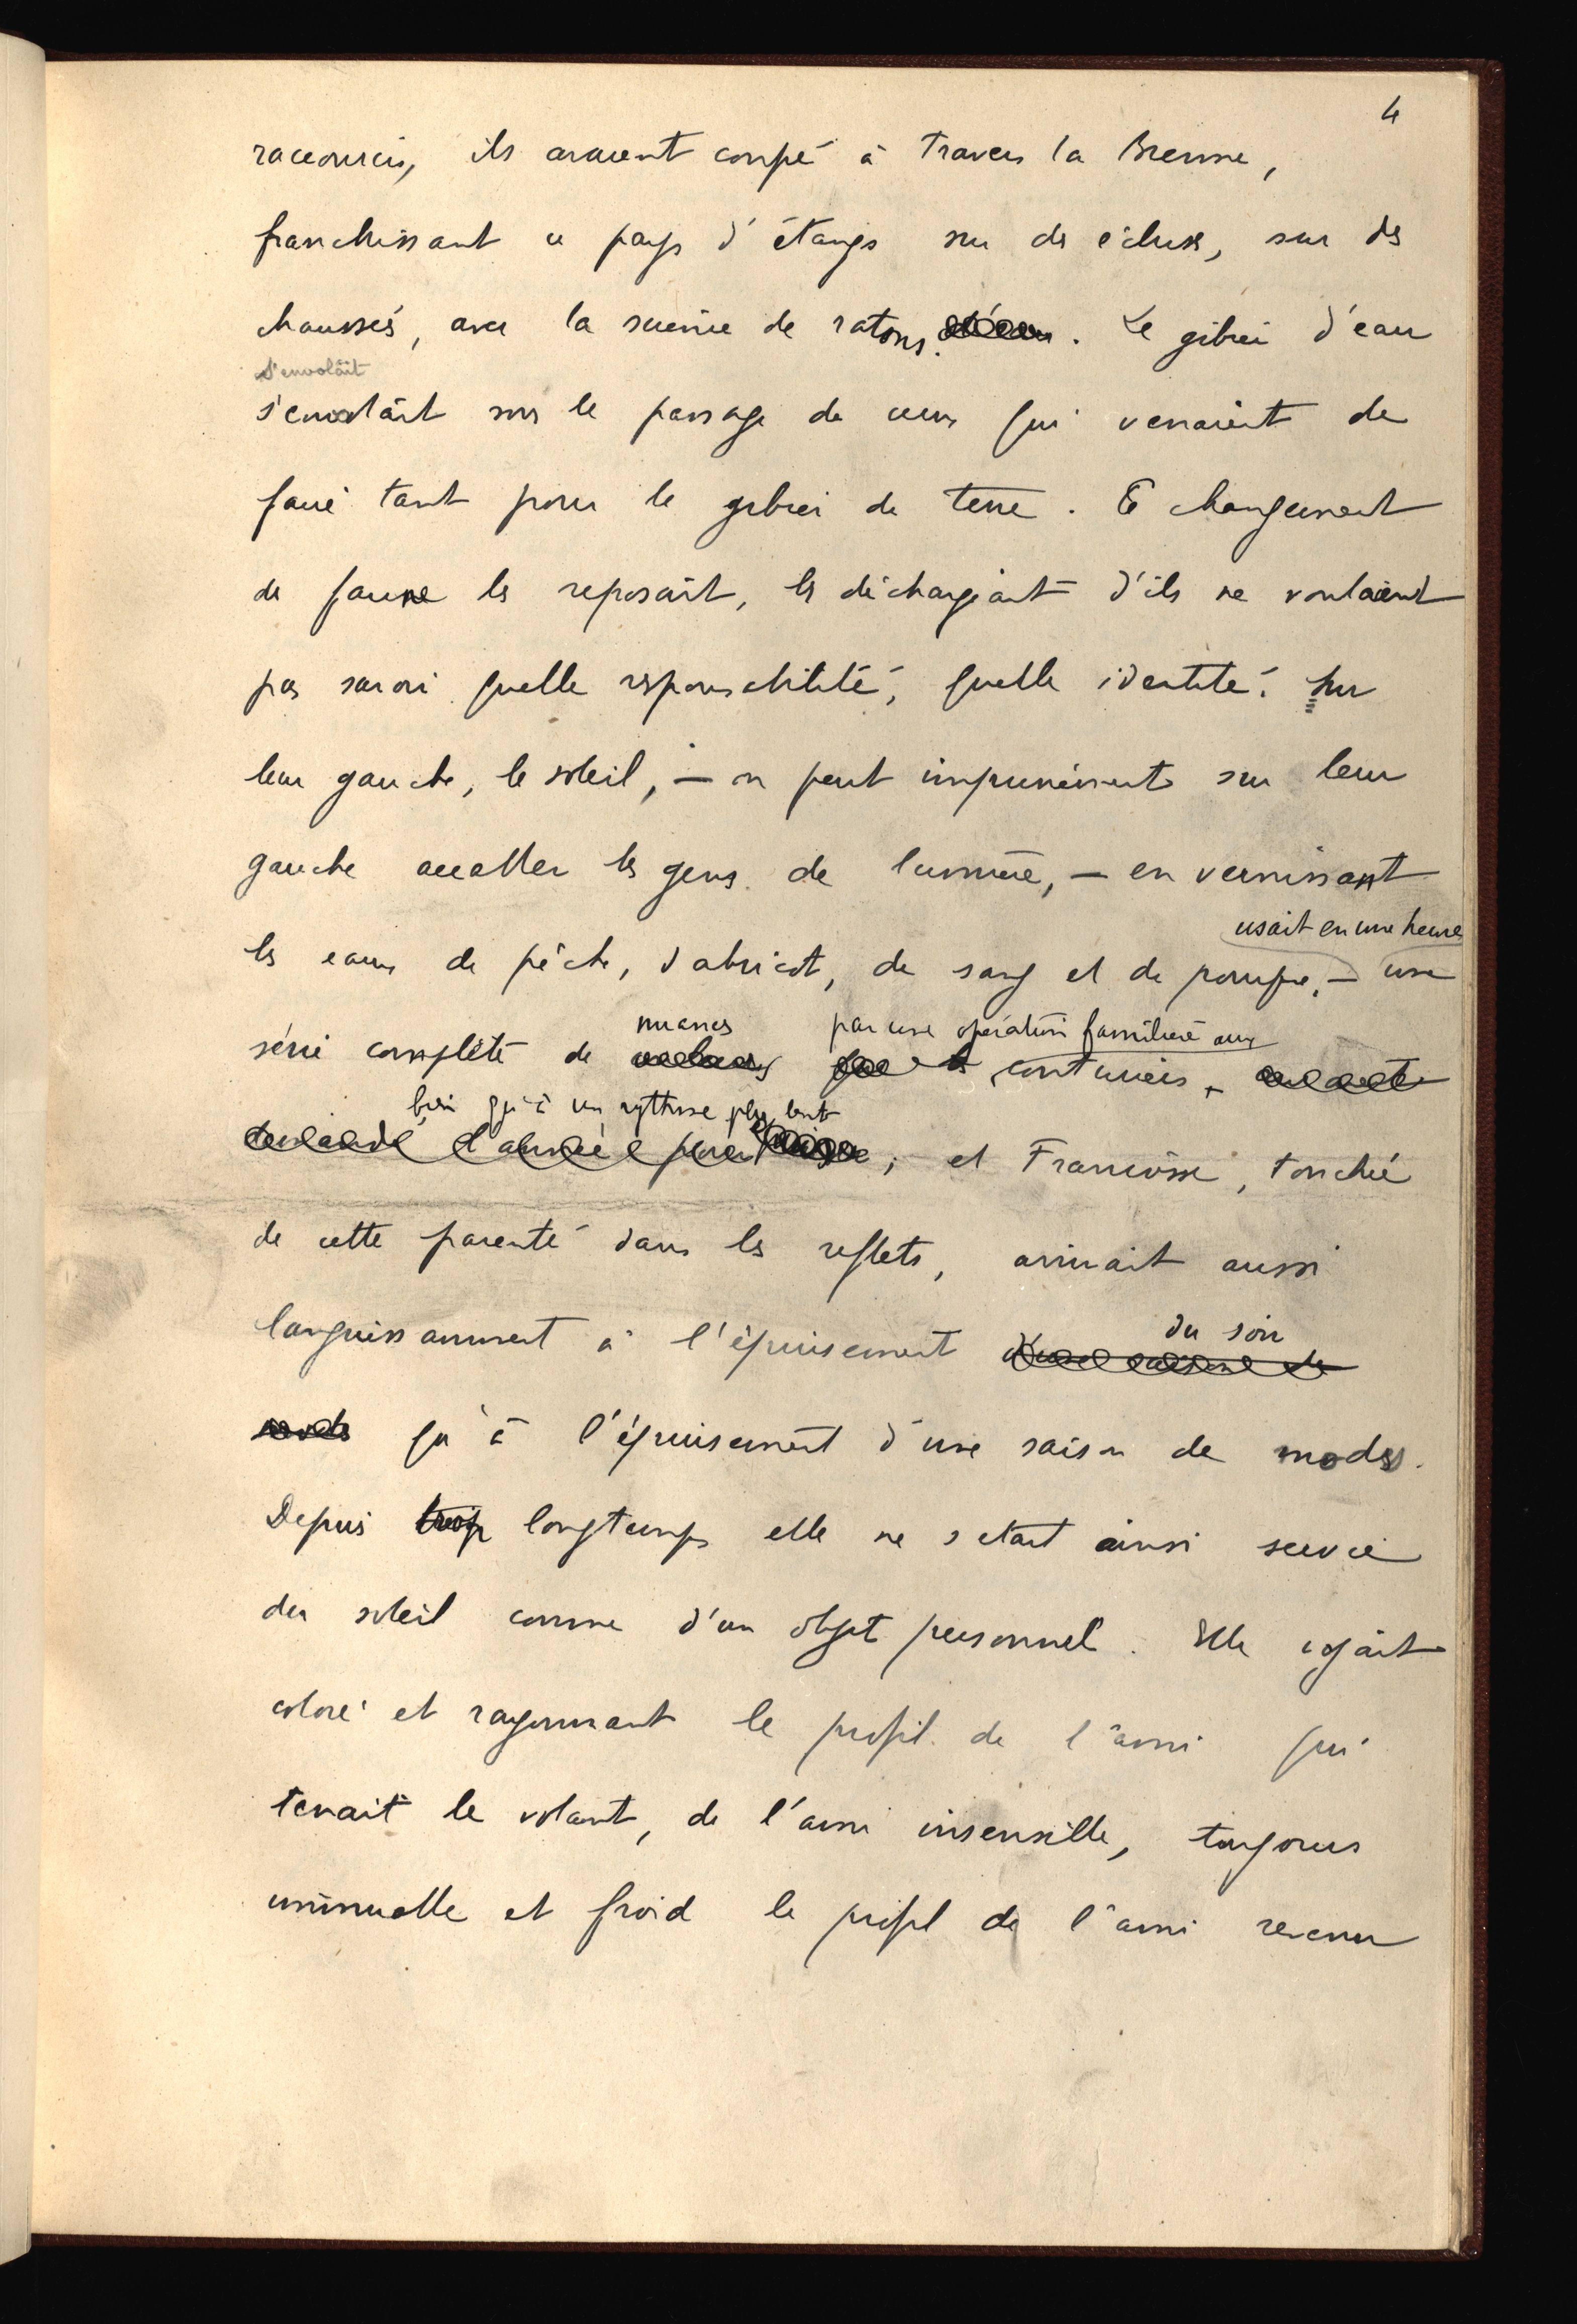 4
raccourcis, ils avaient coupé à travers la Brenne,
franchissant ce pays d'étangs sur des écluses, sur des
chaussées, avec la science de ratons. d'eau. Le gibier d'eau
s'envolait
s'envolait sur le passage de ceux qui venaient de
faire tant pour le gibier de terre. Ce changement
de faune les reposait, les déchargeait d'ils ne voulaient
pas savoir quelle responsabilité, quelle identité. Sur
leur gauche, le soleil, — on peut impunément sur leur
gauche accabler les gens de lumière, — en vernissant
usait en une heure
les eaux de pêche, d'abricot, de sang et de pourpre, — une
nuances par une opération familière aux
série complète de couturiers,
bien qu'à un rythme plus lent
; et Françoise, touchée
de cette parenté dans les reflets, arrivait aussi
du soir
languissamment à l'épuisement d'une saison de
modes qu'à l'épuisement d'une saison de modes.
Depuis trop longtemps elle ne s'était ainsi servie
du soleil comme d'un objet personnel. Elle voyait
coloré et rayonnant le profil de l'ami qui
tenait le volant, de l'ami insensible, toujours
immuable et froid le profil de l'ami revenu